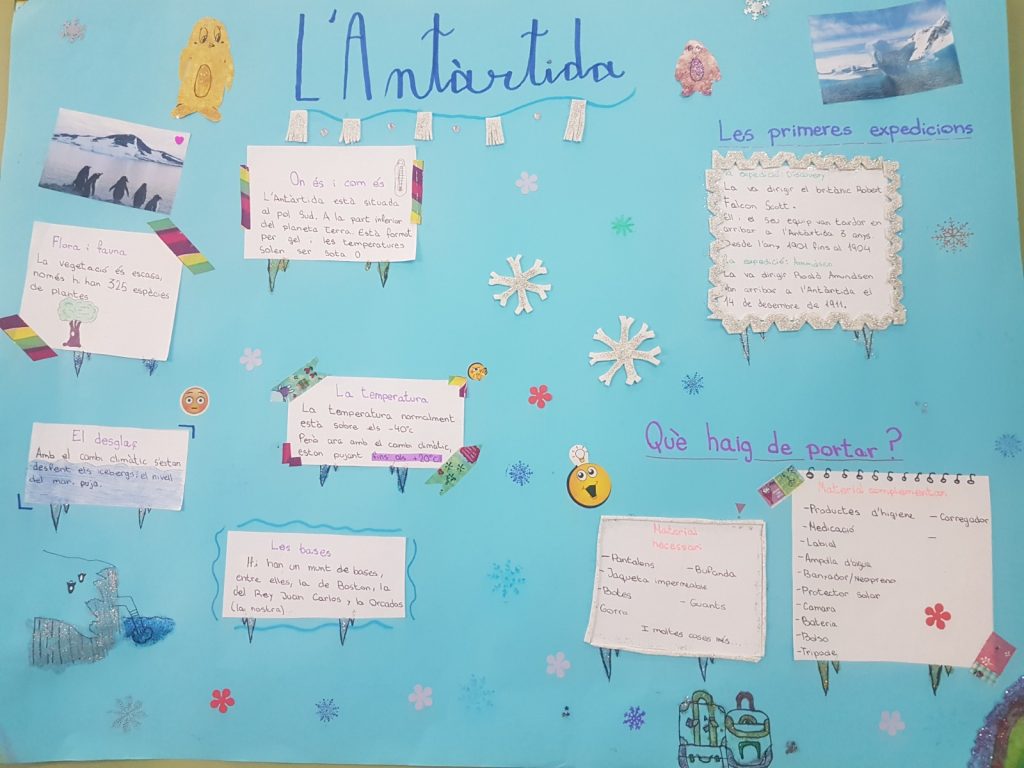 L'Antàrtida
On és i com és
L'Antàrtida està situada
al pol Sud. A la part inferior
del planeta Terra. Està format
per gel i les temperatures
solen ser sota 0
Flora i fauna
La vegetació és escasa,
només hi han 325 espècies
de plantes
La temperatura
La temperatura normalment
està sobre els -40°c
Però ara amb el cambi climàtic
estan pujant fins als +20°C
El desglaç
Amb el cambi climàtic s'estan
desfent els icebergs i el nivell
del mar, puja.
Les bases
Hi han un munt de bases,
entre elles, la de Boston, la
del Rey Juan Carlos y la Orcadas
(la nostra)
Les primeres expedicions
1a expedició: Discovery
La va dirigir el britànic Robert
Falcon Scott.
Ell i el seu equip van tardar en
arribar a l'Antàrtida 3 anys
Desde l'any 1901 fins al 1904
2a expedició: Amundsen
La va dirigir Roald Amundsen
Van arribar a l'Antàrtida el
14 de desembre de 1911.
Què haig de portar?
Material
necessari
-Pantalons -Bufanda
-Jaqueta impermeable
-Botes -Guants
Gorro
I moltes coses més...
Material complementari
-Productes d'higiene -Carregador
-Medicació -
-Labial
-Ampolla d'aigua
-Banyador/Neopreno
-Protector solar
-Càmara
-Bateria
-Bolso
-Trípode